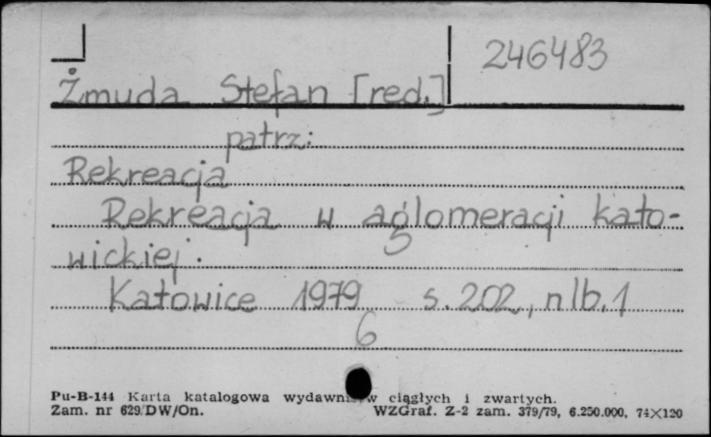 246483
Żmuda Stefan [red.]
patrz:
Rekreacja
Rekreacja w aglomeracji kato-
wickiej.
Katowice 1979 s. 202, nlb. 1
6
Pu-B-144 Karta katalogowa wydawnictw ciągłych i zwartych.
Zam. nr 629/DW/On. WZGraf. Z-2 zam. 379/79, 6.250.000, 74×120